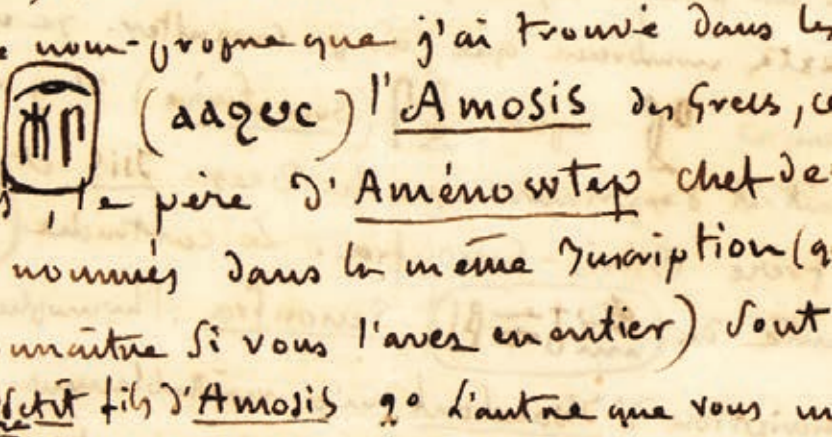 nom-propre que j'ai trouvé dans les
(ⲁⲁϩⲱⲥ) l'Amosis des Grecs, c
le père d'Aménowtep chef de
nommés dans la même Inscription (q
nnaître si vous l'avez en entier) sont
petit fils d'Amosis 2° L'autre que vous m